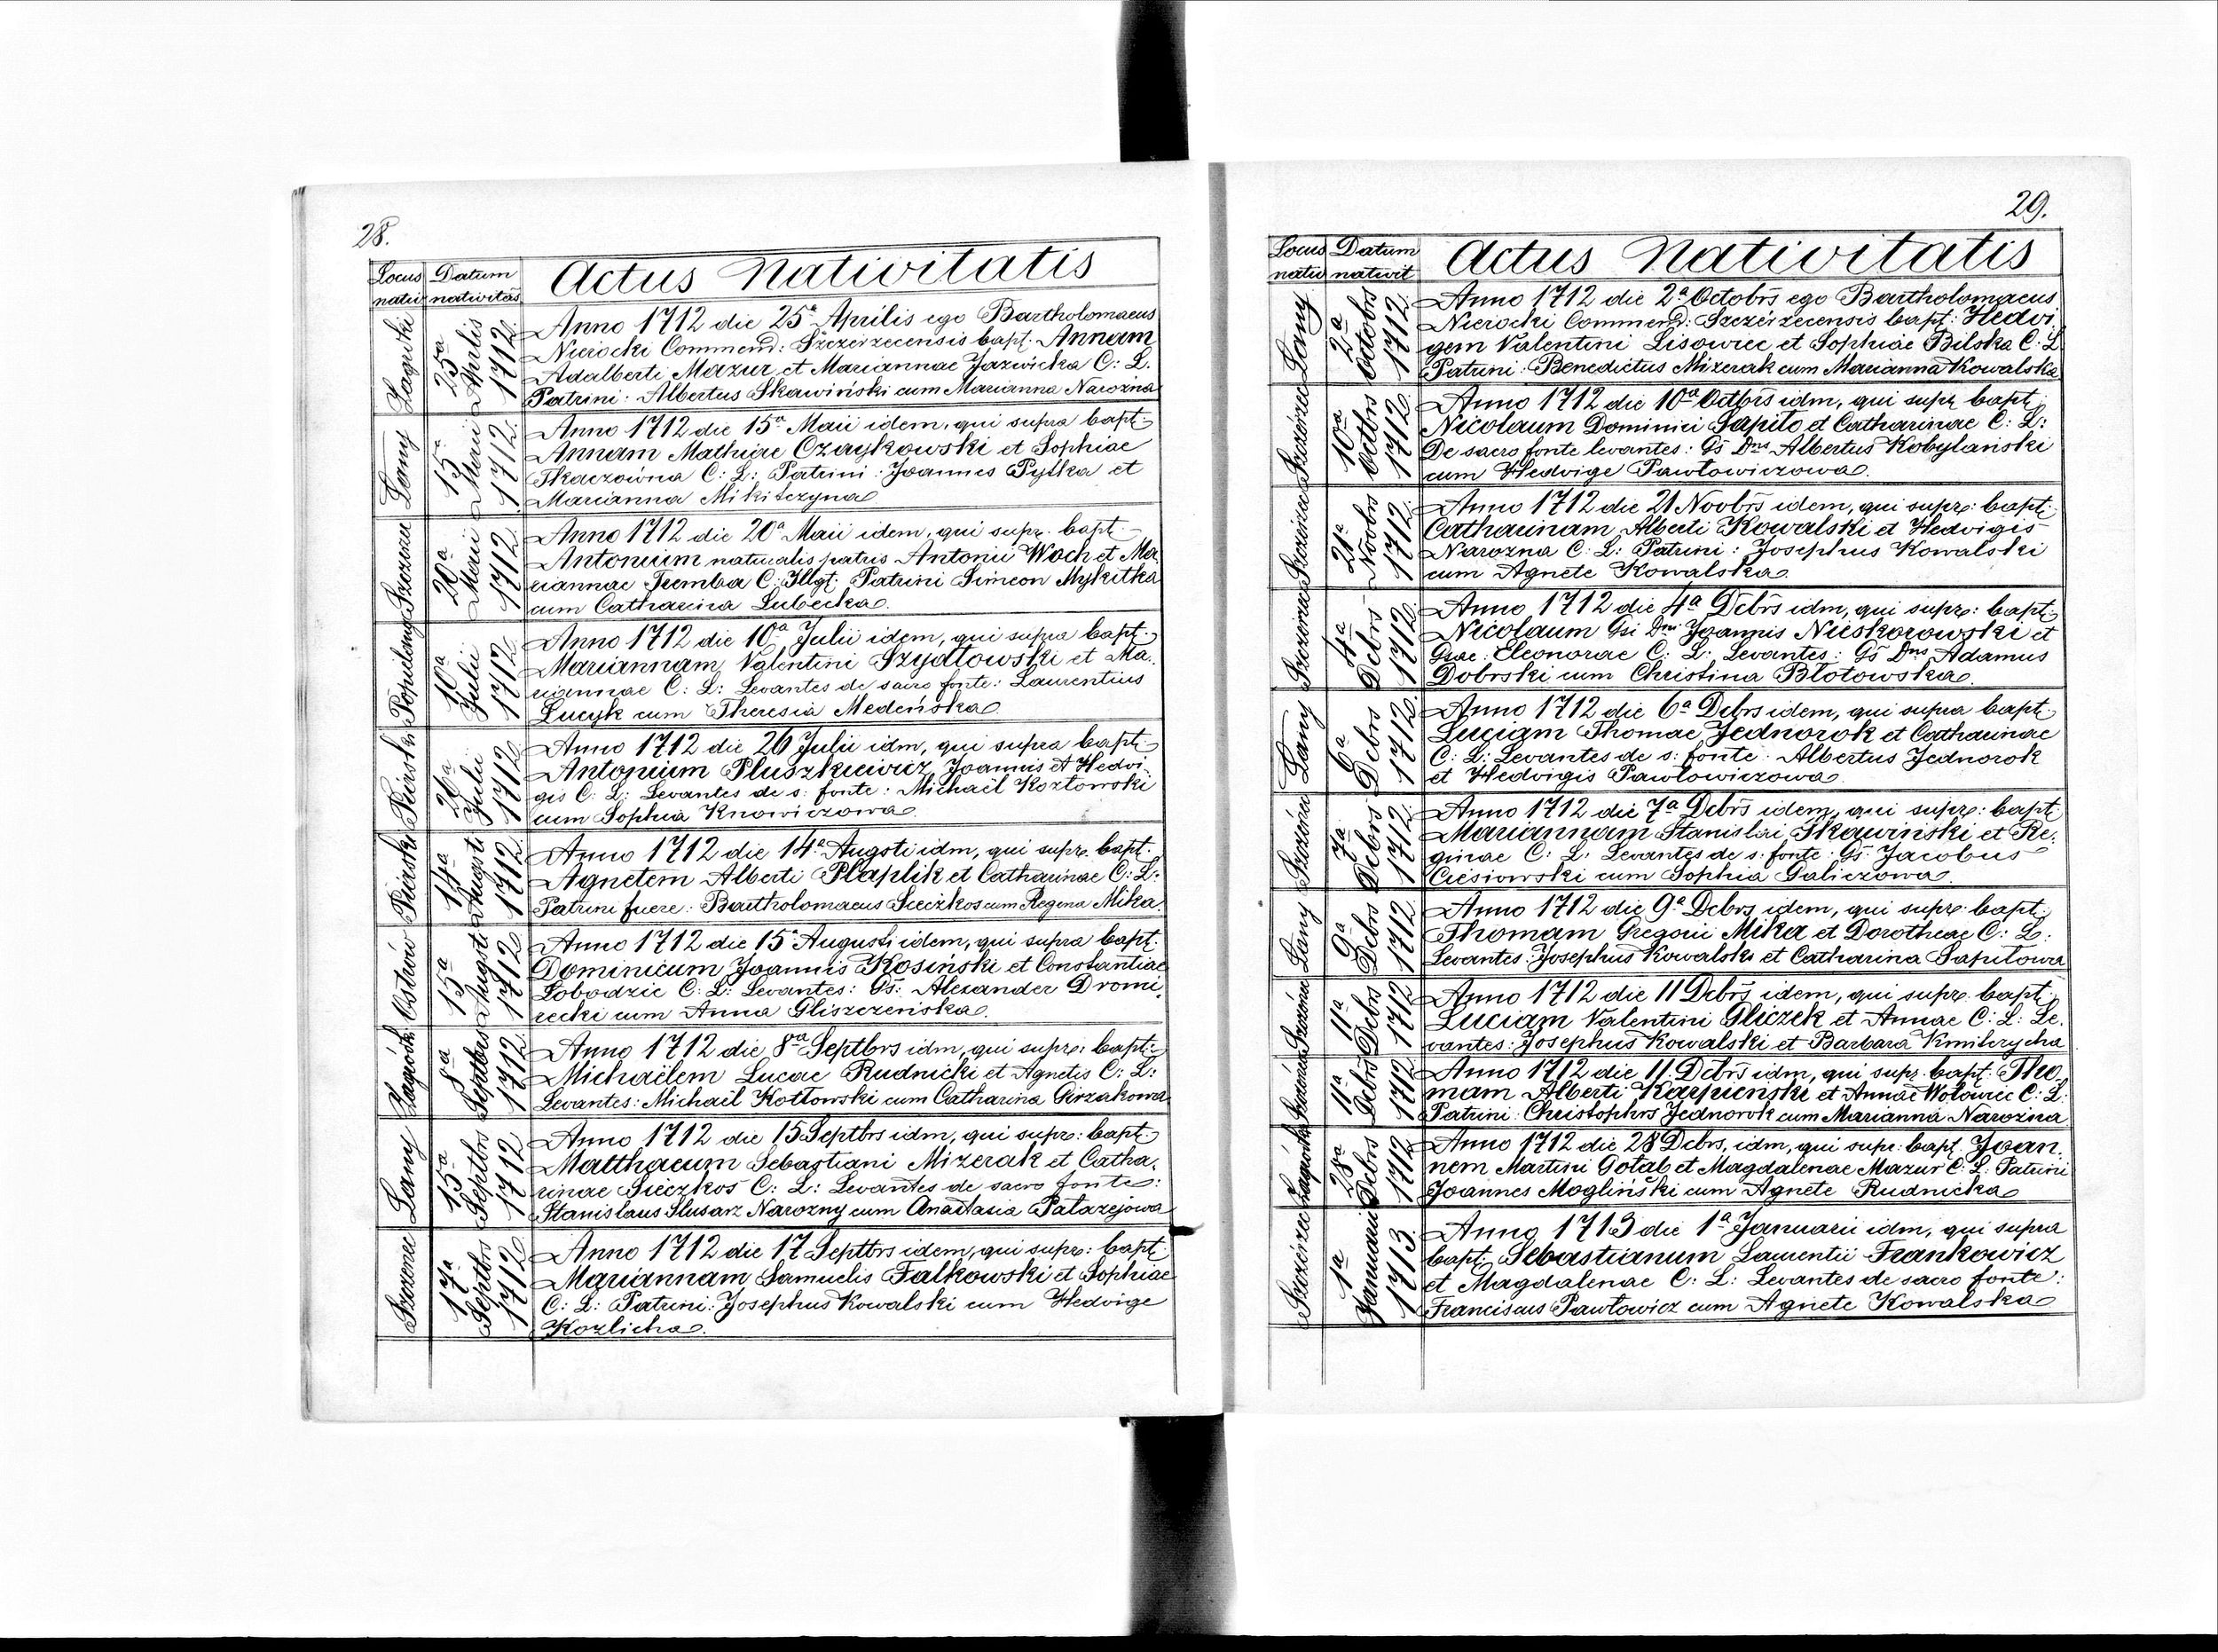 28.
Locus Datum Actus Nativitatis
natii nativitas
Łagodki
25a Aprilis 1712.
Anno 1712 die 25a Aprilis ego Bartholomaeus
Nierocki Commend: Szczérzecensis bapt. Annam
Adalberti Mazur et Mariannae Jazwicka C: L.
Patrini: Albertus Skawiński cum Marianna Narozna
Łany
15a Maii 1712.
Anno 1712 die 15a Maii idem, qui supra bapt:
Annam Mathiae Czaykowski et Sophiae
Tkaczowna C: L: Patrini: Joannes Pylka et
Marianna Mikitczyna
20a Maii 1712.
Anno 1712 die 20a Maii idem, qui supr. bapt.
Antonium naturalis patris Antonii Woch et Ma
riannae Tremba C: Illgt: Patrini Simeon Mykitka
cum Catharina Lubecka.
Popielany
10a Julii 1712
Anno 1712 die 10a Julii idem, qui supra bapt.
Mariannam Valentini Szydłowski et Ma
riannae C: L: Levantes de sacro fonte: Laurentius
Lucyk cum Theresia Medeńska
26a Julii 1712
Anno 1712 die 26 Julii idm, qui supra bapt:
Antonium Pluszkiewicz Joannis et Hedvi
gis C: L: Levantes de s: fonte: Michaël Kozłowski
cum Sophia Knowiczowa
Piaski
14a Augsti 1712
Anno 1712 die 14a Augsti idm, qui supr. bapt.
Agnetem Alberti Plaplik et Catharinae C: L:
Patrini fuere: Bartholomaeus Sieczkos cum Regina Mika.
Ostrów
15a Augsti 1712
Anno 1712 die 15a Augusti idem, qui supra bapt.
Dominicum Joannis Kosiński et Constantiae
Łobodzic C: L: Levantes: Gs: Alexander Dromi
recki cum Anna Gliszczeńska.
Zagródki
8a Septbrs 1712
Anno 1712 die 8a Septbrs idm, qui supr: bapt:
Michaëlem Lucae Rudnicki et Agnetis C: L:
Levantes: Michaël Kotlowski cum Catharina Girzakowa
Łany
15a Septbrs 1712
Anno 1712 die 15 Septbrs idm, qui supr: bapt:
Matthaeum Sebastiani Mizerak et Catha
rinae Sieczkos C: L: Levantes de sacro fonte:
Stanislaus Slusarz Narozny cum Anastasia Patazejowa
17a Septbrs 1712
Anno 1712 die 17 Septbrs idem, qui supr: bapt:
Mariannam Samuelis Falkowski et Sophiae
C: L: Patrini: Josephus Kowalski cum Hedvige
Kozlicha.
29.
Locus Datum Actus Nativitatis
natii nativit
Łany
2a Octobrs 1712.
Anno 1712 die 2a Octobrs ego Bartholomaeus
Nierocki Commend: Szczérzecensis bapt: Hedvi
gem Valentini Lisowiec et Sophiae Bilska C: L
Patrini: Benedictus Mizerak cum Marianna Kowalska
Szczérzec
10a Octbrs 1712.
Anno 1712 die 10a Octbrs idm, qui supr. bapt:
Nicolaum Dominici Sapito et Catharinae C: L:
De sacro fonte levantes: Gs Dns Albertus Kobylański
cum Hedvige Pawłowiczowa.
21a Novbrs 1712
Anno 1712 die 21 Novbrs idem, qui supr: bapt:
Catharinam Alberti Kowalski et Hedvigis
Narozna C: L: Patrini: Josephus Kowalski
cum Agnete Kowalska.
4a Debrs 1712
Anno 1712 die 4a Debrs idm, qui supr: bapt:
Nicolaum Gsi Dni Joannis Nieskorowski et
Gsae: Eleonorae C: L: Levantes: Gs Dns Adamus
Dobrski cum Christina Błotowska.
Łany
6a Debrs 1712
Anno 1712 die 6a Debrs idem, qui supra bapt:
Luciam Thomae Jednorok et Catharinae
C: L: Levantes de s: fonte: Albertus Jednorok
et Hedvigis Pawlowiczowa.
7a Debrs 1712
Anno 1712 die 7a Debrs idem, qui supr: bapt:
Mariannam Stanislai Skawiński et Re
ginae C: L: Levantes de s: fonte: Gs. Jacobus
Ciésiowski cum Sophia Galiczowa.
Łany
9a Debrs 1712
Anno 1712 die 9a Debrs idem, qui supr: bapt:
Thomam Gregorii Mika et Dorotheae C: L:
Levantes: Josephus Kowalski et Catharina Sapitowa
11a Debrs 1712
Anno 1712 die 11 Debrs idem, qui supr. bapt:
Luciam Valentini Gliczek et Annae C: L: Le
vantes: Josephus Kowalski et Barbara Kmitrycha
11a Debrs 1712
Anno 1712 die 11. Debrs idm, qui supr. bapt: Tho
mam Alberti Karpieński et Annae Wołowiec C: L:
Patrini: Christophrs Jednorok cum Marianna Narozna
Zagródki
28a Debrs 1712
Anno 1712 die 28 Debrs, idm, qui supr: bapt. Joan
nem Martini Gotab et Magdalenae Mazur C: L: Patrini
Joannes Mogliński cum Agnete Rudnicka
Szczérzec
1a Januarii 1713.
Anno 1713 die 1a Januarii idm, qui supra
bapt. Sebastianum Laurentii Frankowicz
et Magdalenae C: L: Levantes de sacro fonte:
Franciscus Pawłowicz cum Agnete Kowalska